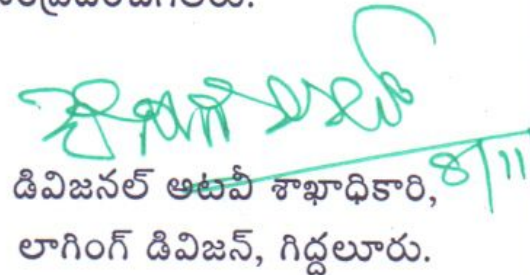 8/11
డివిజనల్ అటవీ శాఖాధికారి,
లాగింగ్ డివిజన్, గిద్దలూరు.